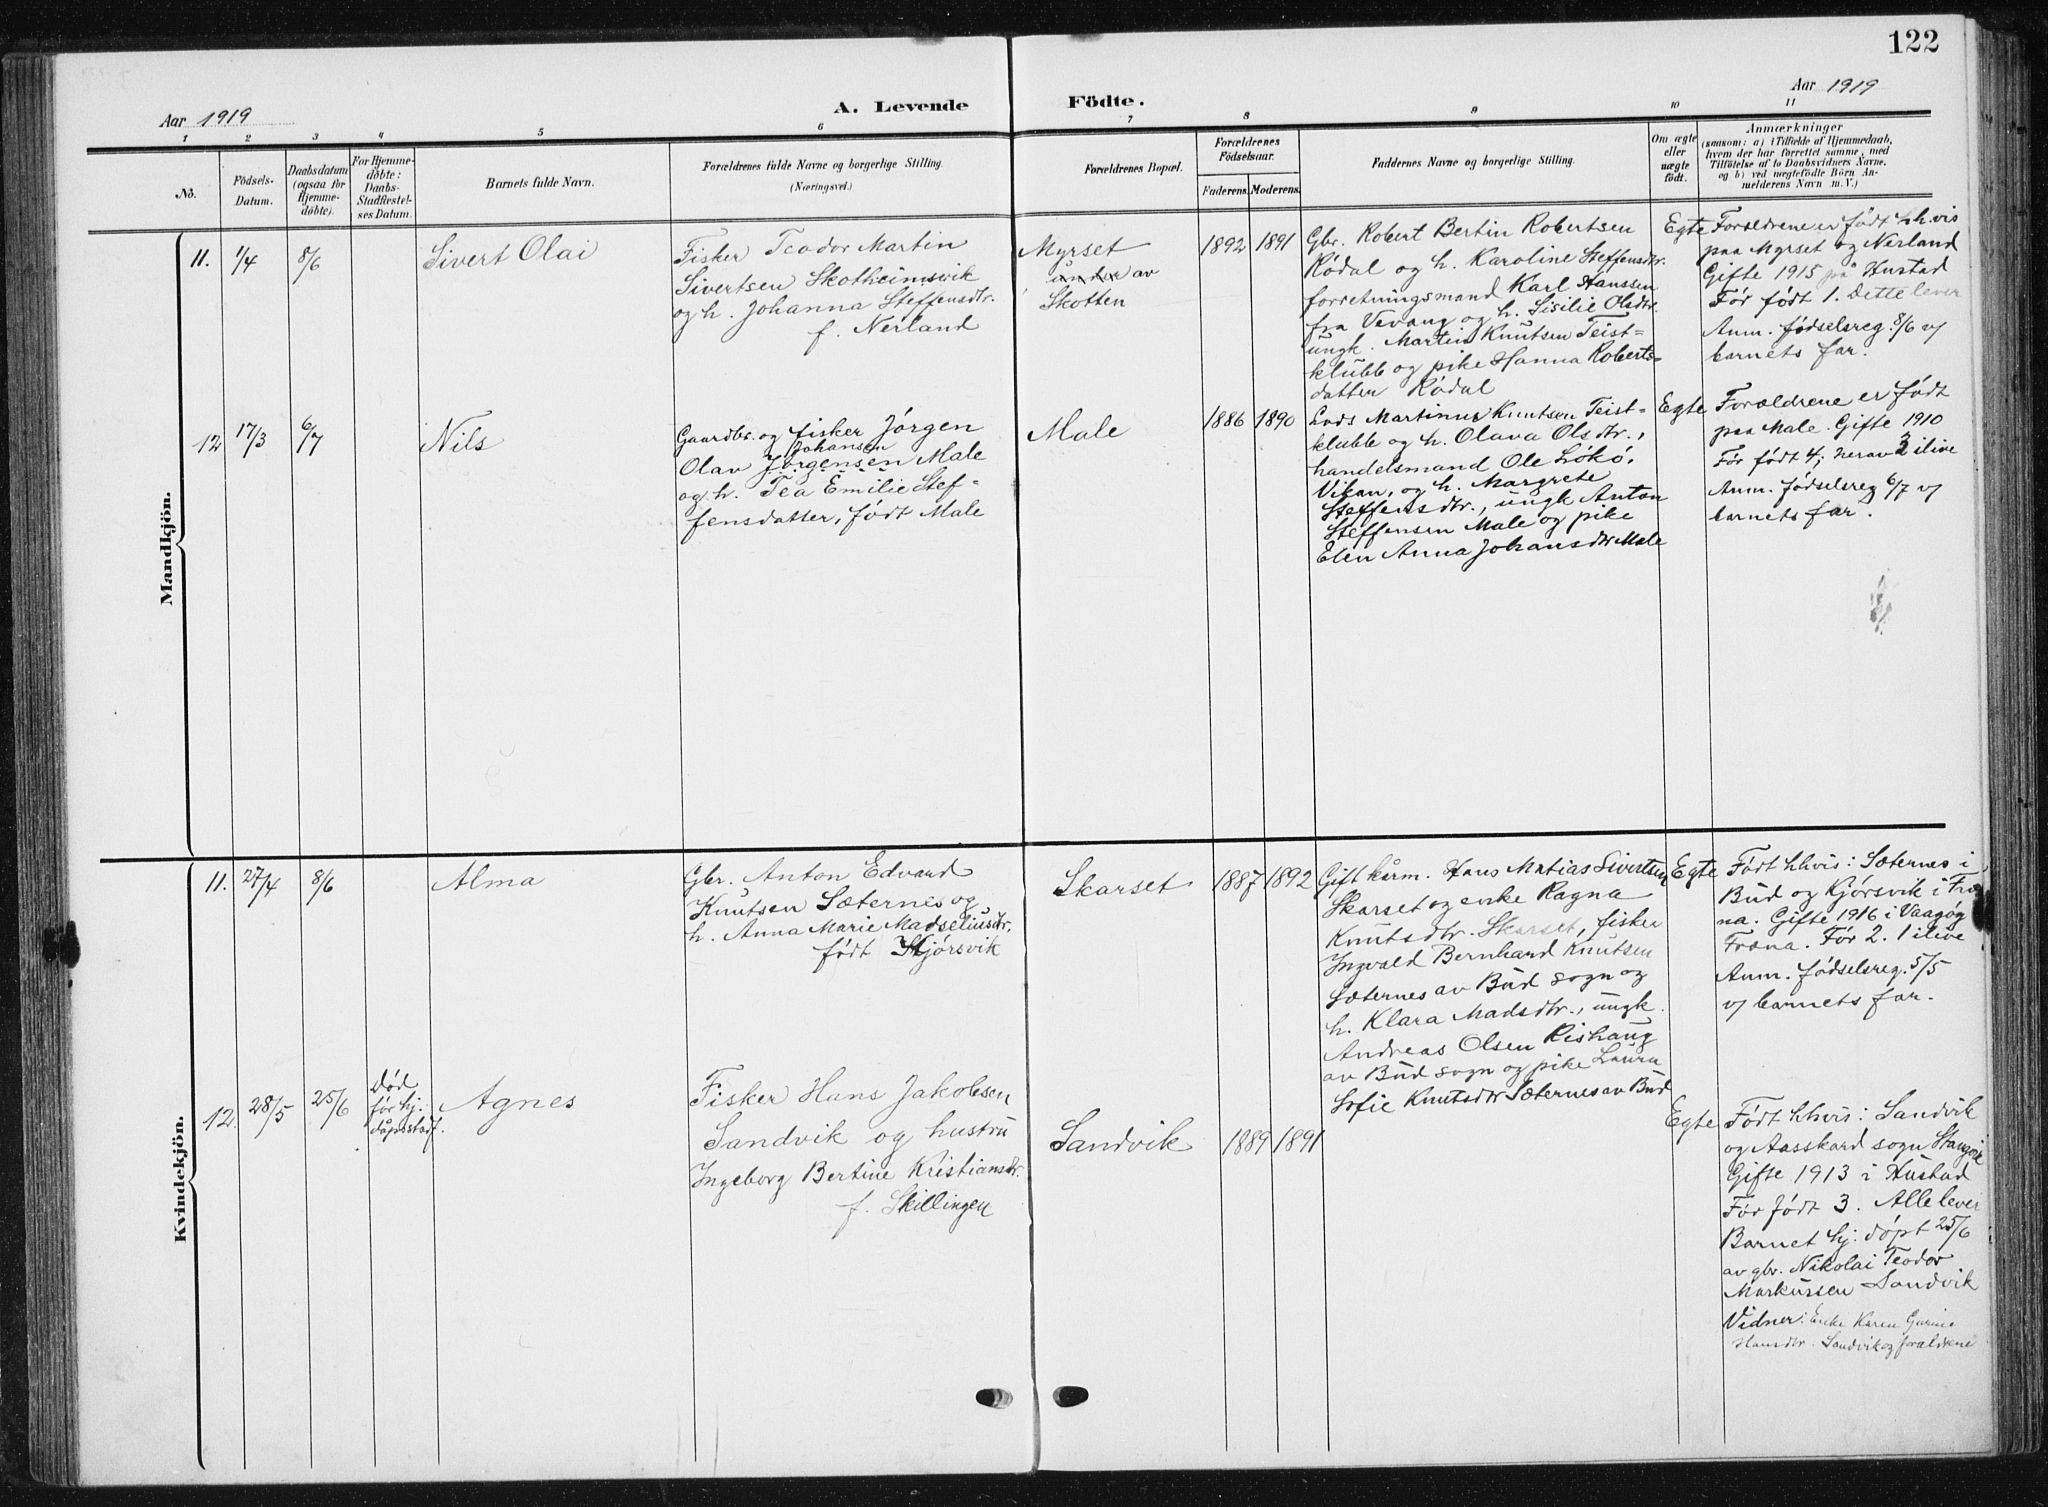 122
Aar 1919
A. Levende Födte.
Aar 1919
1 2 3 4 5 6 7 8 9 10 11
No.
Födsels-
Datum.
Daabsdatum
(ogsaa for
Hjemme-
döbte).
For Hjemme-
döbte:
Daabs-
Stadfæstel-
ses Datum.
Barnets fulde Navn.
Forældrenes fulde Navne og borgerlige Stilling.
(Næringsvei.)
Forældrenes Bopæl.
Forældrenes
Födselsaar.
Faderens. Moderens.
Faddernes Navne og borgerlige Stilling.
Om ægte
eller
uægte
födt.
Anmærkninger
(saasom: a) i Tilfælde af Hjemmedaab,
hvem der har forrettet samme, med
Tilföielse af to Daabsvidners Navne,
og b) ved uægtefödte Börn An-
melderens Navn m. V.)
Mandkjön.
11. 1/4 8/6
Sivert Olai
Fisker Teodor Martin
Sivertsen Skotheimsvik
og h. Johanna Steffensdtr.
f. Nerland
Myrset
av
Skotten
1892 1891
Gbr. Robert Bertin Robertsen
Rødal og h. Karoline Steffensdtr.
forretningsmand Karl Hanssen
fra Vevang og h. Sisilie Olsdtr.
ungk. Martin Knutsen Teist-
klubb og pike Hanna Roberts-
datter Rødal
Egte
Forældrene er født hhvis
paa Myrset og Nerland
Gifte 1915 på Hustad
Før født 1. Dette lever
Anm. fødselsreg. 8/6 v/
barnets far.
12 17/3 6/7
Nils
Gaardbr. og fisker Jørgen
Johansen
Olav Jørgensen Male
og h. Tea Emilie Stef-
fensdatter, født Male
Male
1886 1890
Lods Martinus Knutsen Teist-
klubb og h. Olava Olsdtr.,
handelsmand Ole Løkø,
Vikan, og h. Margrete
Steffensdtr., ungk Anton
Steffensen Male og pike
Elen Anna Johansdtr Male
Egte
Forældrene er født
paa Male. Gifte 1910
Før født 4; herav 3 ilive
Anm. fødselsreg 6/7 v/
barnets far.
Kvindekjön.
11. 27/4 8/6
Alma
Gbr. Anton Edvard
Knutsen Sæternes og
h. Anna Marie Madseliusdtr.
født Kjørsvik
Skarset
1887 1892
Gift kårm. Hans Matias Sivertsen
Skarset og enke Ragna
Knutsdtr. Skarset, fisker
Ingvald Bernhard Knutsen
Sæternes av Bud sogn og
h. Klara Madsdtr., ungk.
Andreas Olsen Rishaug
av Bud sogn og pike Laura
Sofie Knutsdtr Sæternes av Bud
Egte
Født hhvis: Sæternes i
Bud og Kjørsvik i Fræ
na. Gifte 1916 i Vaagøy
Fræna. Før 2. 1 ilive
Anm. fødselsreg. 5/5
v/ barnets far.
12. 28/5 25/6
Død
før hj.
dåpsstadf.
Agnes
Fisker Hans Jakobsen
Sandvik og hustru
Ingeborg Bertine Kristiansdtr.
f. Skillingen
Sandvik
1889 1891
Egte
Født hhvis: Sandvik
og Aasskard sogn
Gifte 1913 i Hustad
Før født 3. Alle lever
Barnet hj. døpt 25/6
av gbr. Nikolai Teodor
Markussen Sandvik
Vidner: Enke Karen Gurine
Hansdtr. Sandvik og forældrene